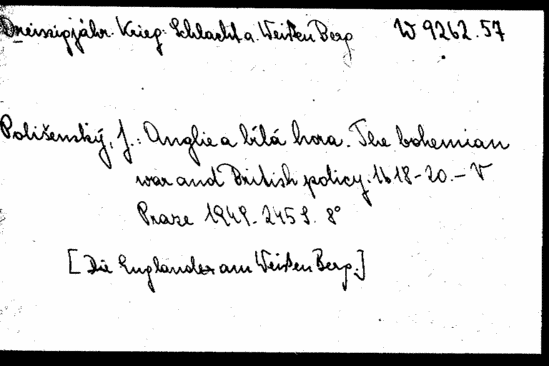 Dreissigjähr. Krieg: Schlacht a. Weißen Berg W 9262.57
Polišenský, J.: Anglie a bílá hora. The bohemian
war and British policy. 1618-20. - V
Praze 1949. 245 S. 8°
[Die Engländer am Weißen Berg.]